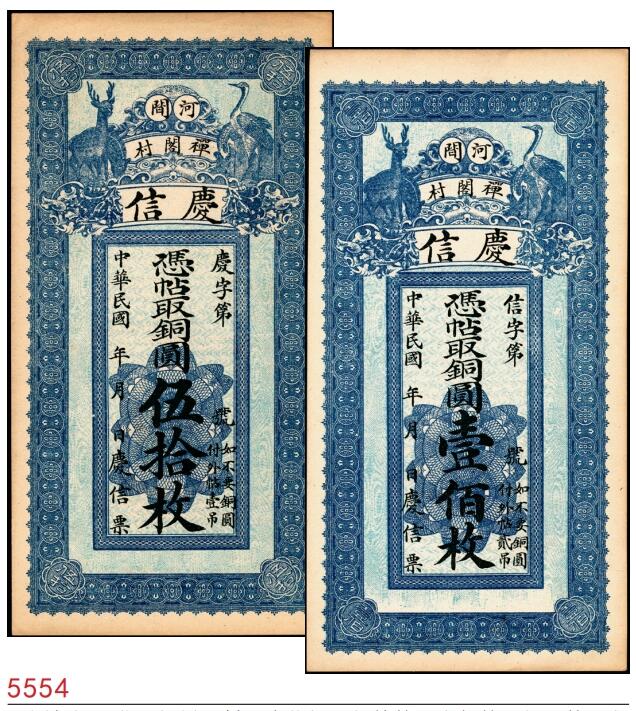 河間
禪閣村
慶信
慶字第 號
憑帖取銅圓伍拾枚
如不要銅圓
付外帖壹吊
中華民國 年 月 日慶信票
河間
禪閣村
慶信
信字第 號
憑帖取銅圓壹佰枚
如不要銅圓
付外帖貳吊
中華民國 年 月 日慶信票
5554